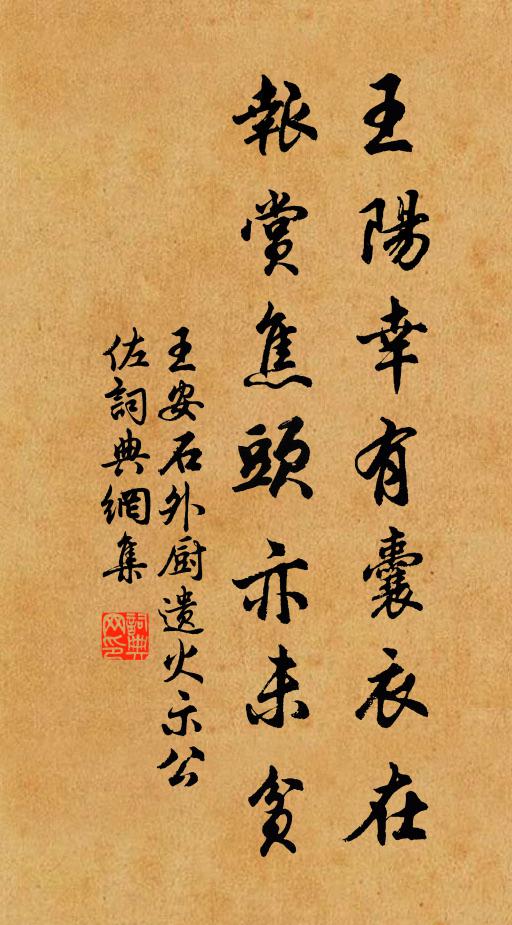 王陽幸有囊衣在
報賞焦頭亦未貧
王安石外厨遺火示公
佐詞典網集
詞典网印